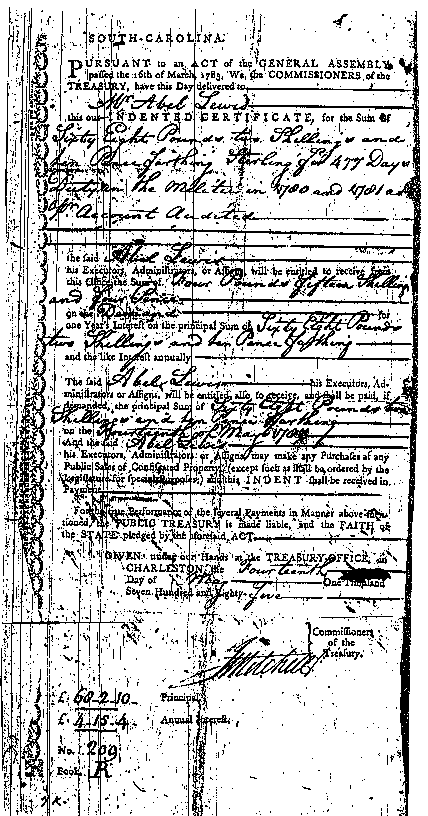 SOUTH-CAROLINA.
PURSUANT to an ACT of the GENERAL ASSEMBLY
passed the 16th of March, 1783, We, the COMMISSIONERS of the
TREASURY, have this Day delivered to
Mr. Abel Lewis
this our INDENTED CERTIFICATE, for the Sum of
Sixty Eight Pounds, two Shillings and
ten Pence farthing Sterling for 477 Days
Duty in the Militia in 1780 and 1781 as
Pr. Account Audited
the said Abel Lewis
his Executors, Administrators, or Assigns, will be entitled to receive from
this Office the Sum of Four Pounds fifteen Shillings
and four Pence
on the for
one Year's Interest on the principal Sum of Sixty Eight Pounds
two Shillings and ten Pence farthing
and the like Interest annually
The said Abel Lewis his Executors, Ad-
ministrators or Assigns, will be entitled, also, to receive, and shall be paid, if
demanded, the principal Sum of Sixty Eight Pounds two
Shillings and ten Pence farthing
on the
And the said Abel Lewis
his Executors, Administrators or Assigns, may make any Purchases at any
Public Sales of Confiscated Property, (except such as shall be ordered by the
Legislature for special Purposes;) and this INDENT shall be received in
Payment.
For the true Performance of the several Payments in Manner above-men-
tioned, the PUBLIC TREASURY is made liable, and the FAITH of
the STATE pledged by the aforesaid ACT.
GIVEN under our Hands at the TREASURY-OFFICE, in
CHARLESTON, the Fourteenth
Day of May One Thousand
Seven Hundred and Eighty-Five
Commissioners
of the
Treasury.
£. 68.2.10 Principal.
£. 4.15.4 Annual Interest.
No. 209
Book R